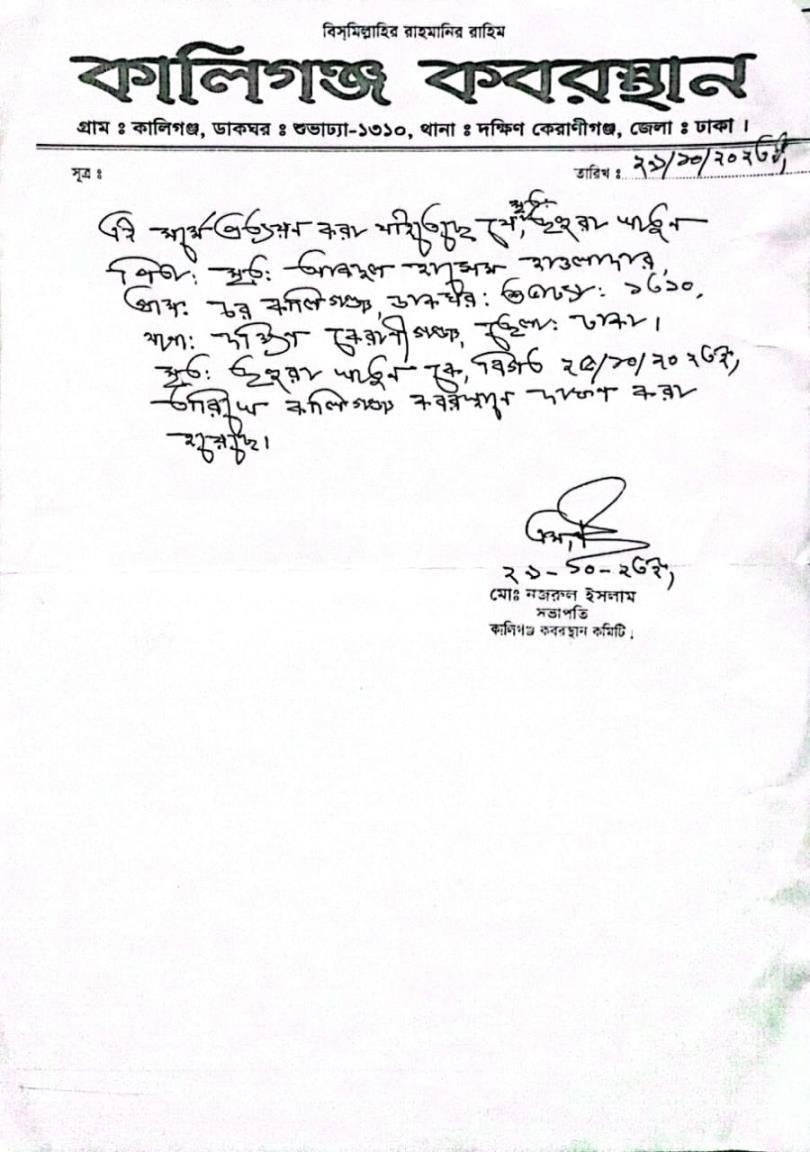 বিস্‌মিল্লাহির রাহমানির রাহিম
কালিগঞ্জ কবরস্থান
গ্রাম ঃ কালিগঞ্জ, ডাকঘর ঃ শুভাঢ্যা-১৩১০, থানা ঃ দক্ষিণ কেরাণীগঞ্জ, জেলা ঃ ঢাকা ।
সূত্র ঃ
তারিখ ঃ
এই মর্মে প্রত্যয়ন করা যাইতেছে যে, মৃত: জহুরা খাতুন
পিতা: মৃত: আবদুল হাওলাদার,
গ্রাম: চর কালিগঞ্জ, ডাকঘর: শুভাঢ্যা: ১৩১০,
থানা: দক্ষিণ কেরাণীগঞ্জ, জেলা: ঢাকা।
মৃত: জহুরা খাতুন কে, বিগত
তারিখে কালিগঞ্জ কবরস্থানে দাফন করা
হয়েছে।
মোঃ নজরুল ইসলাম
সভাপতি
কালিগঞ্জ কবরস্থান কমিটি।